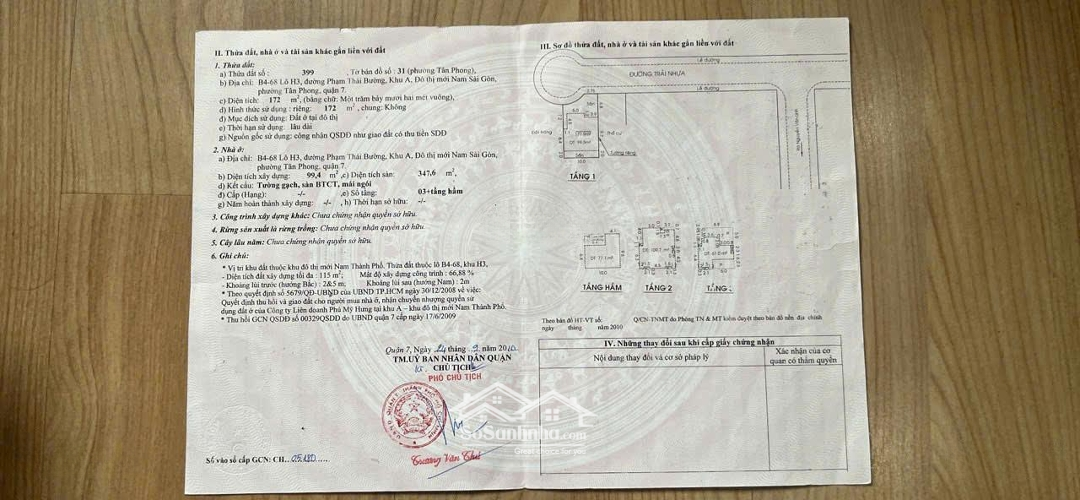 II. Thửa đất, nhà ở và tài sản khác gắn liền với đất
1. Thửa đất:
a) Thửa đất số : 399 , Tờ bản đồ số : 31 (phường Tân Phong),
b) Địa chỉ: B4-68 Lô H3, đường Phạm Thái Bường, Khu A, Đô thị mới Nam Sài Gòn,
phường Tân Phong, quận 7.
c) Diện tích: 172 m², (bằng chữ: Một trăm bảy mươi hai mét vuông),
d) Hình thức sử dụng : riêng: 172 m² , chung: Không
đ) Mục đích sử dụng: Đất ở tại đô thị
e) Thời hạn sử dụng: lâu dài
g) Nguồn gốc sử dụng: công nhận QSDĐ như giao đất có thu tiền SDĐ
2. Nhà ở:
a) Địa chỉ: B4-68 Lô H3, đường Phạm Thái Bường, Khu A, Đô thị mới Nam Sài Gòn,
phường Tân Phong, quận 7.
b) Diện tích xây dựng: 99,4 m² ,c) Diện tích sàn: 347,6 m²,
d) Kết cấu: Tường gạch, sàn BTCT, mái ngói
đ) Cấp (Hạng): -/- ,e) Số tầng: 03+tầng hầm
g) Năm hoàn thành xây dựng: -/- , h) Thời hạn sở hữu: -/-
3. Công trình xây dựng khác: Chưa chứng nhận quyền sở hữu
4. Rừng sản xuất là rừng trồng: Chưa chứng nhận quyền sở hữu.
5. Cây lâu năm: Chưa chứng nhận quyền sở hữu.
6. Ghi chú:
* Vị trí khu đất thuộc khu đô thị mới Nam Thành Phố. Thửa đất thuộc lô B4-68, khu H3,
- Diện tích đất xây dựng tối đa : 115 m²; Mật độ xây dựng công trình : 66,88 %
- Khoảng lùi trước (hướng Bắc) : 2&5 m; Khoảng lùi sau (hướng Nam) : 2m
* Theo quyết định số 5679/QĐ-UBND của UBND TP.HCM ngày 30/12/2008 về việc:
Quyết định thu hồi và giao đất cho người mua nhà ở, nhận chuyển nhượng quyền sử
dụng đất ở của Công ty Liên doanh Phú Mỹ Hưng tại khu A – khu đô thị mới Nam Thành Phố.
* Thu hồi GCN QSDĐ số 00329QSDĐ do UBND quận 7 cấp ngày 17/6/2009
Quận 7, Ngày 24 tháng 9 năm 2010
TM.UỶ BAN NHÂN DÂN QUẬN
CHỦ TỊCH
PHÓ CHỦ TỊCH
Số vào sổ cấp GCN: CH...05180.....
III. Sơ đồ thửa đất, nhà ở và tài sản khác gắn liền với đất
Lề đường
ĐƯỜNG TRẢI NHỰA
Lề đường
TẦNG 1
TẦNG HẦM
TẦNG 2
TẦNG
Theo bản đồ HT-VT số
Q/CN-TNMT do Phòng TN & MT kiểm duyệt theo bản đồ nền địa chính
ngày tháng năm 2010
IV. Những thay đổi sau khi cấp giấy chứng nhận
Nội dung thay đổi và cơ sở pháp lý
Xác nhận của cơ
quan có thẩm quyền
SoSanNha.com